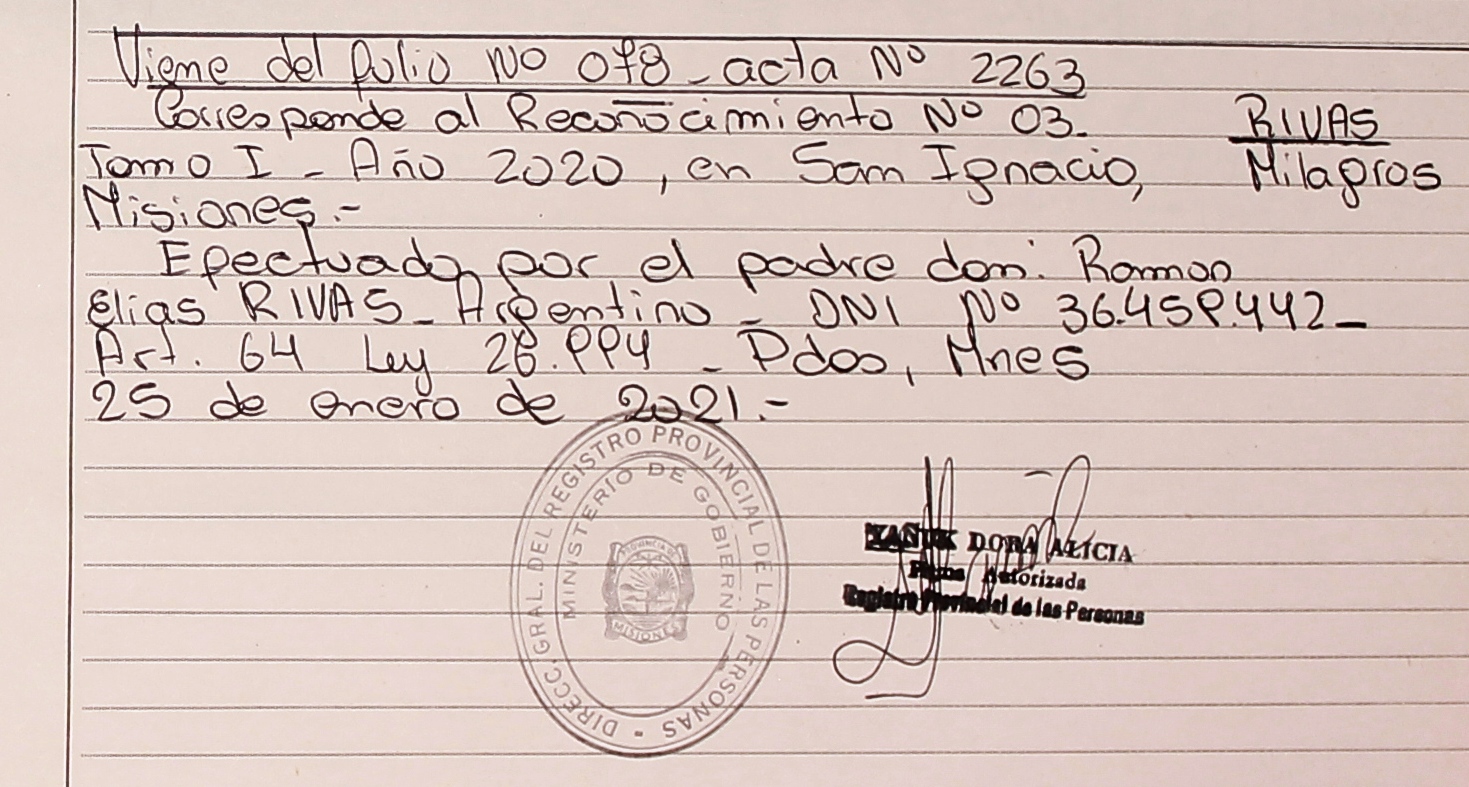 Viene del folio Nº 078 - acta Nº 2263
Corresponde al Reconocimiento Nº 03.
Tomo I - Año 2020, en San Ignacio,
Misiones.-
RIVAS
Milagros
Efectuado por el padre don: Ramon
Elias RIVAS - Argentino - DNI Nº 36.459.442 -
Art. 64 Ley 26.994 - Pdas, Mnes
25 de enero de 2021.-
DIRECC. GRAL. DEL REGISTRO PROVINCIAL DE LAS PERSONAS -
MINISTERIO DE GOBIERNO
PROVINCIA DE
MISIONES
YAÑUK DORA ALICIA
Firma Autorizada
Registro Provincial de las Personas